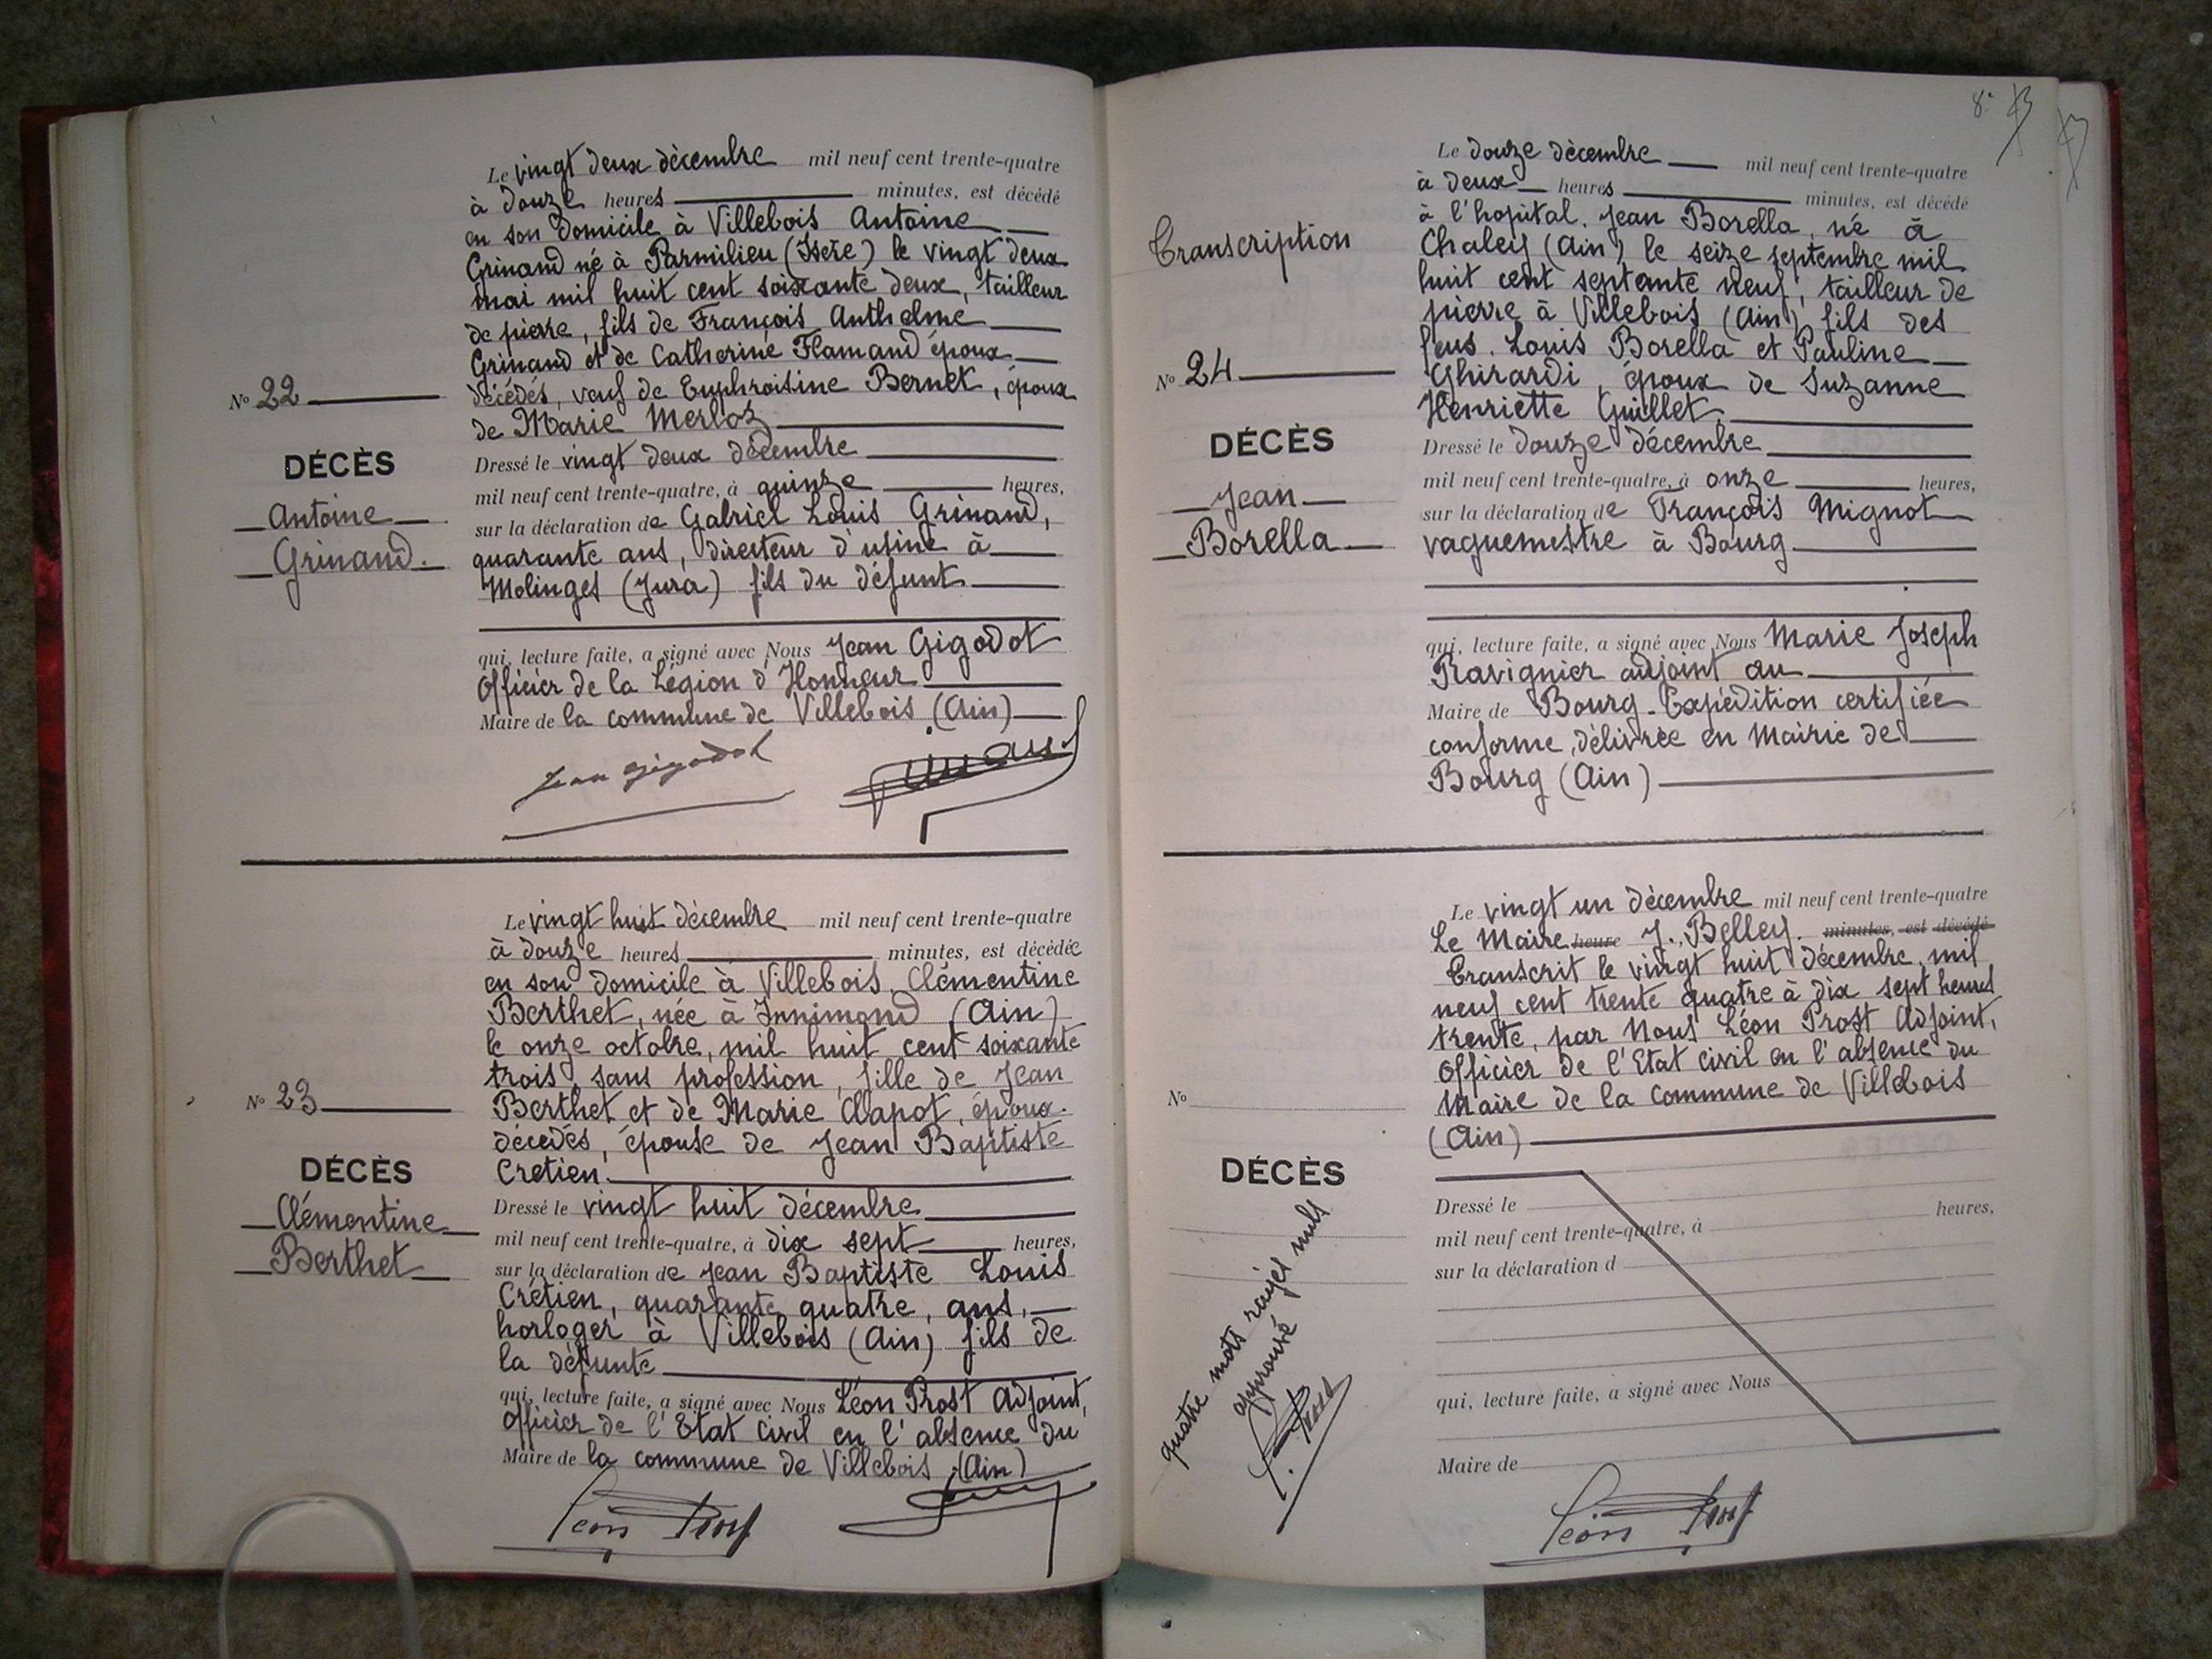 Le vingt deux décembre mil neuf cent trente-quatre
à douze heures minutes, est décédé
en son domicile à Villebois Antoine
Grinand né à Parmilieu (Isère) le vingt deux
mai mil huit cent soixante deux, tailleur
de pierre, fils de François Anthelme
Grinand et de Catherine Flamand époux
décédés, veuf de Euphroisine Bernet, époux
de Marie Merloz
Nº 22
DÉCÈS
Antoine
Grinand.
Dressé le vingt deux décembre
mil neuf cent trente-quatre, à quinze heures,
sur la déclaration de Gabriel Louis Grinand,
quarante ans, directeur d'usine à
Molinges (Jura) fils du défunt
qui, lecture faite, a signé avec Nous Jean Gigodot
Officier de la Légion d'Honneur
Maire de la commune de Villebois (Ain)
Jean Gigodot
Grinand
Le vingt huit décembre mil neuf cent trente-quatre
à douze heures minutes, est décédée
en son domicile à Villebois, Clémentine
Berthet, née à Innimond (Ain)
le onze octobre, mil huit cent soixante
trois, sans profession, fille de Jean
Berthet et de Marie Clapot, époux.
décedés, épouse de Jean Baptiste
Cretien.
Nº 23
DÉCÈS
Clémentine
Berthet
Dressé le vingt huit décembre
mil neuf cent trente-quatre, à dix sept heures,
sur la déclaration de Jean Baptiste Louis
Crétien, quarante quatre, ans,
horloger à Villebois (Ain) fils de
la défunte
qui, lecture faite, a signé avec Nous Léon Prost Adjoint,
officier de l'Etat Civil en l'absence du
Maire de la commune de Villebois (Ain)
Léon Prost
8º
Transcription
Nº 24
DÉCÈS
Jean
Borella
Le douze décembre mil neuf cent trente-quatre
à deux heures minutes, est décédé
à l'hopital. Jean Borella, né à
Chaley (Ain) le seize septembre mil
huit cent septante neuf, tailleur de
pierre à Villebois (Ain) fils des
feus. Louis Borella et Pauline
Ghirardi, époux de Suzanne
Henriette Guillet.
Dressé le douze décembre
mil neuf cent trente-quatre, à onze heures,
sur la déclaration de François Mignot
vaguemestre à Bourg
qui, lecture faite, a signé avec Nous Marie Joseph
Ravignier adjoint au
Maire de Bourg. Expédition certifiée
conforme, délivrée en Mairie de
Bourg (Ain)
Le vingt un décembre mil neuf cent trente-quatre
Le Maire heure J. Belley. minutes, est décédé
Transcrit le vingt huit décembre, mil
neuf cent trente quatre à dix sept heures
trente, par Nous Léon Prost Adjoint,
Officier de l'Etat Civil en l'absence du
Maire de la Commune de Villebois
(Ain)
Nº
DÉCÈS
quatre mots rayés nuls
approuvé
L. Prost
Dressé le
mil neuf cent trente-quatre, à heures,
sur la déclaration d
qui, lecture faite, a signé avec Nous
Maire de
Léon Prost